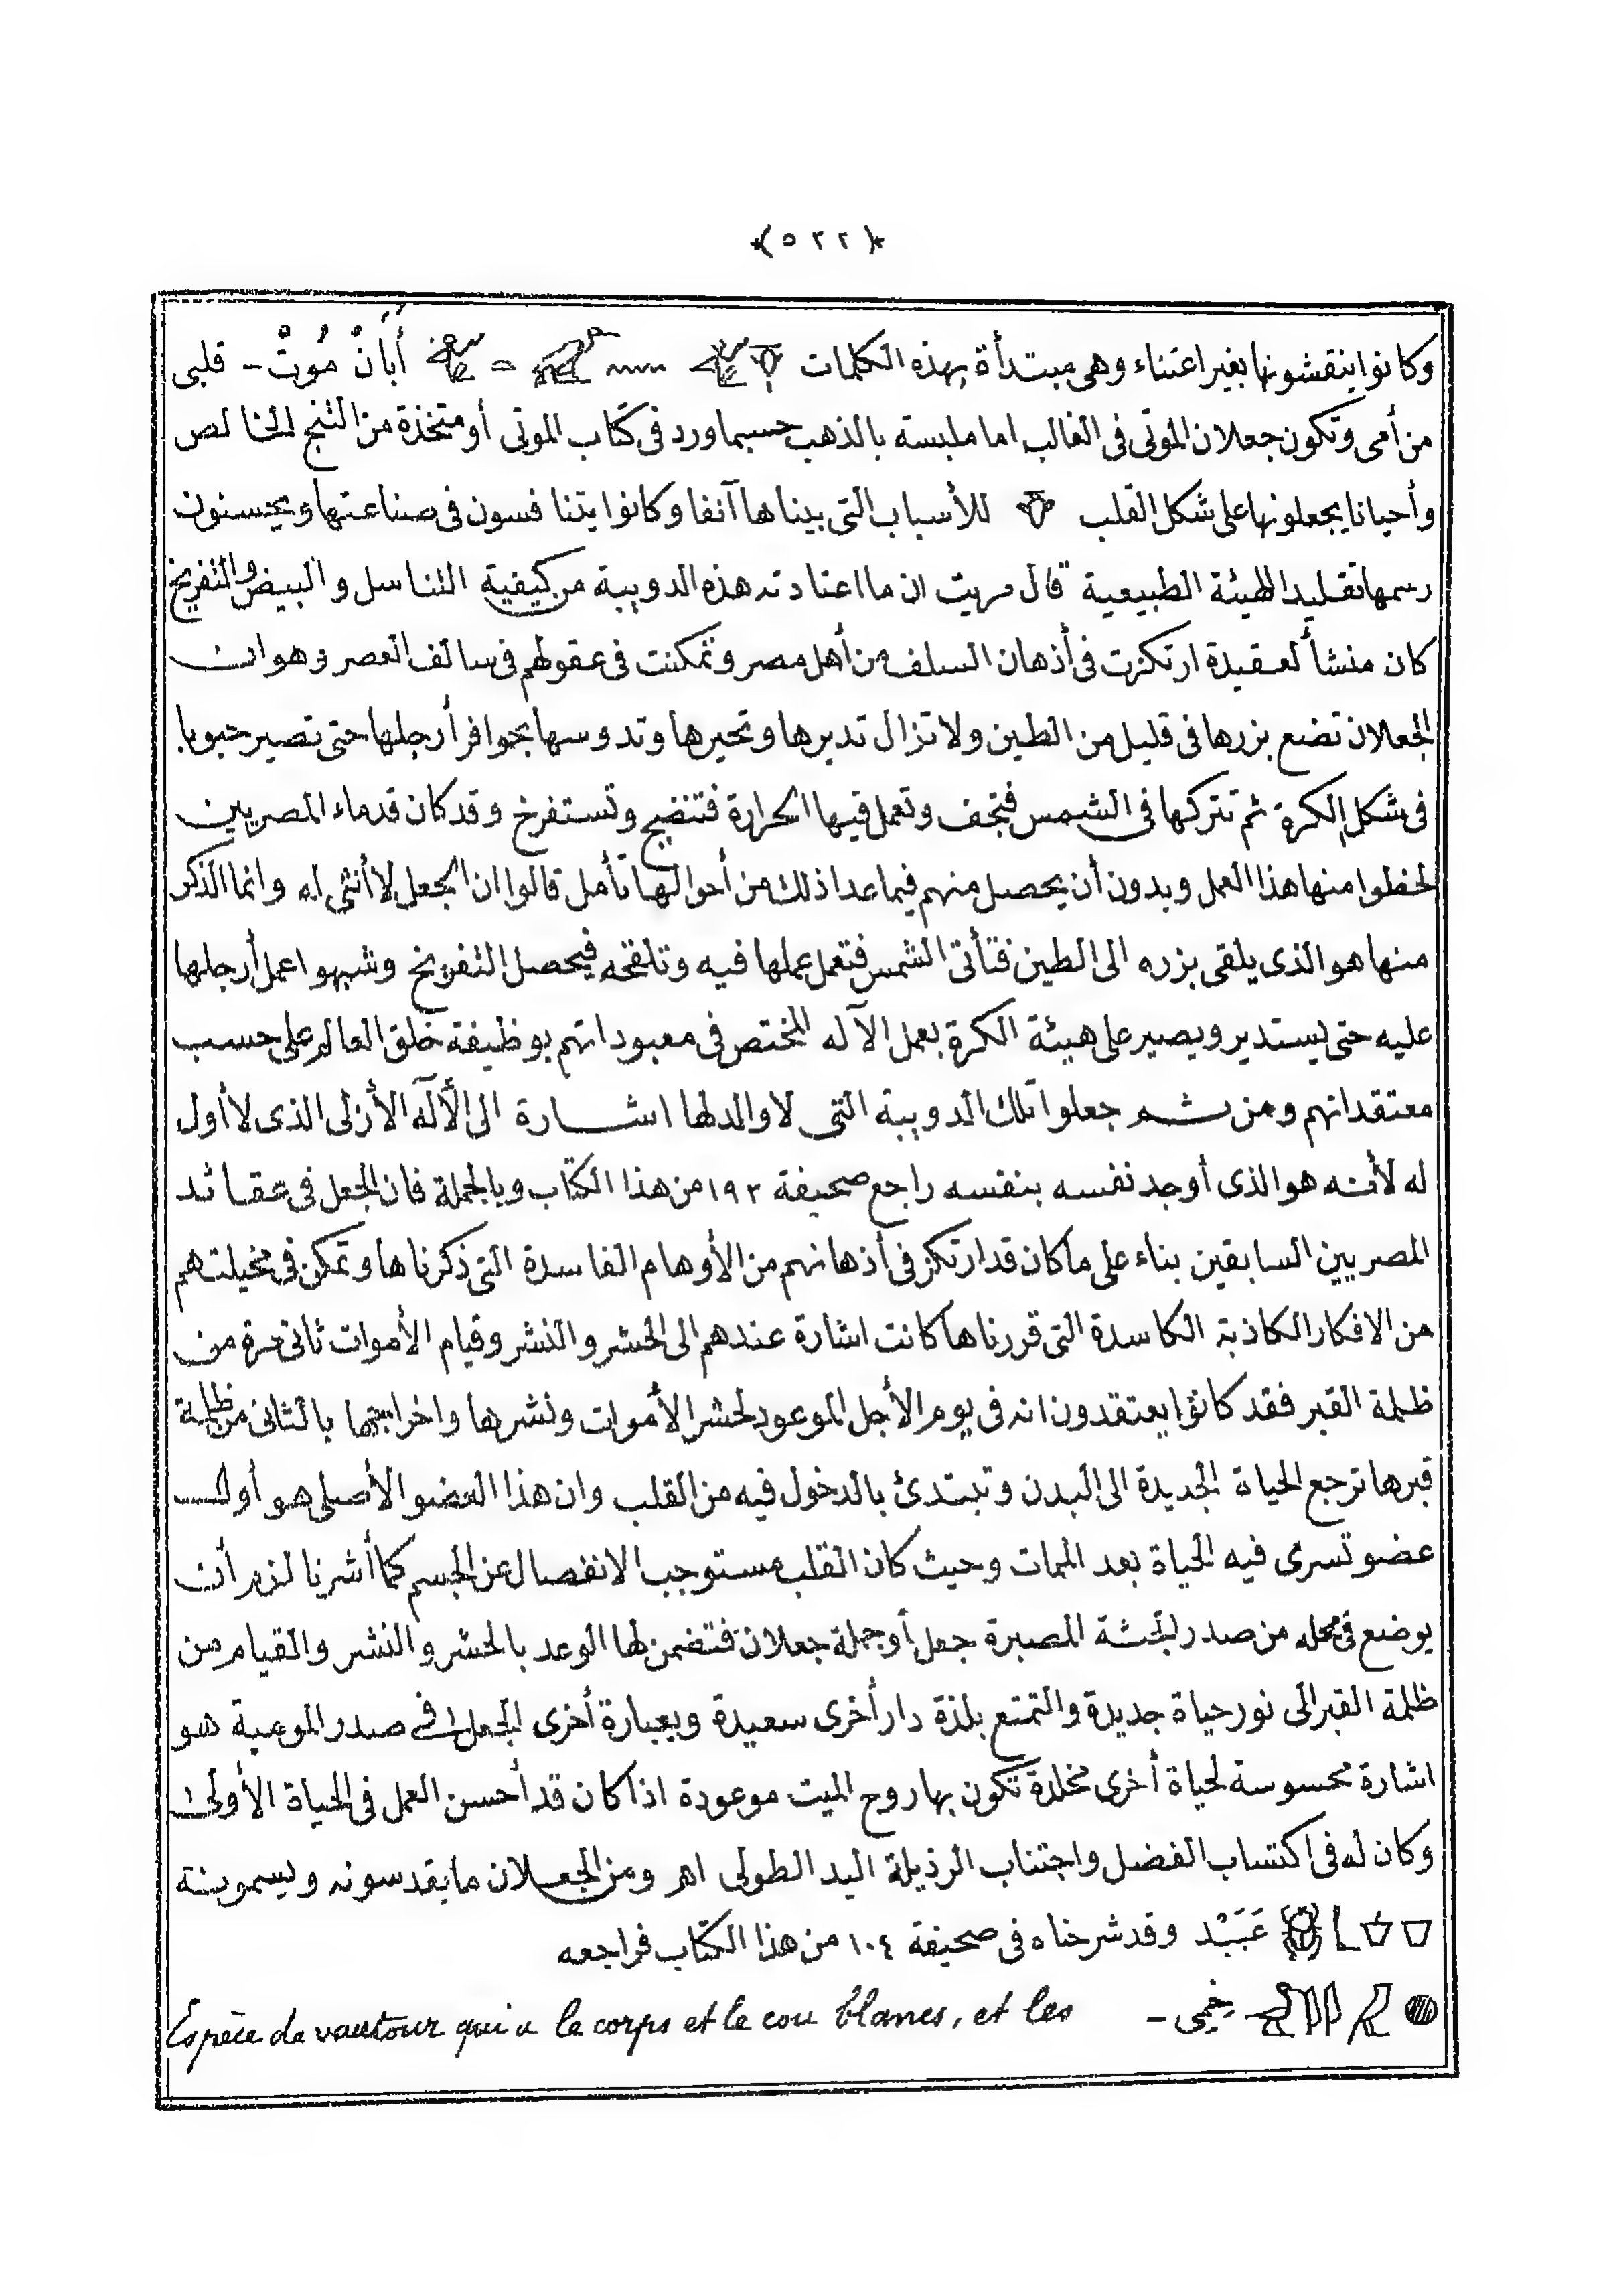 ﴿٥٢٢﴾
وكانوا ينقشونها بغير اعتناء وهى مبتدأة بهذه الكلمات أَبَانْ مُوتْ - قلبى
من أمى وتكون جعلان الموتى فى الغالب اما ملبسة بالذهب حسبما ورد فى كتاب الموتى أو متخذة من الثنج الخالص
وأحيانا يجعلونها على شكل القلب للأسباب التى بيناها آنفا وكانوا يتنافسون فى صناعتها ويحسنون
رسمها تقليدا للهيئة الطبيعية قال مريت ان ما اعتادته هذه الدويبة من كيفية التناسل والبيض والتفريخ
كان منشأ لعقيدة ارتكزت فى أذهان السلف من أهل مصر وتمكنت فى عقولهم فى سالف العصر وهو ان
الجعلان تضع بزرها فى قليل من الطين ولا تزال تديرها وتحيرها وتدوسها بحوافر أرجلها حتى تصير حبوبا
فى شكل الكرة ثم تتركها فى الشمس فتجف وتعمل فيها الحرارة فتنضج وتستفرخ وقد كان قدماء المصريين
لحظوا منها هذا العمل وبدون أن يحصل منهم فيما عدا ذلك من أحوالها تأمل قالوا ان الجعل لا أنثى له وانما الذكر
منها هو الذى يلقى بزره الى الطين فتأتى الشمس فتعمل عملها فيه وتلقحه فيحصل التفريخ وشبهوا عمل أرجلها
عليه حتى يستدير ويصير على هيئة الكرة بعمل الآله المختص فى معبوداتهم بوظيفة خلق العالم على حسب
معتقداتهم ومن ثم جعلوا تلك الدويبة التى لا والد لها اشارة الى الآله الأزلى الذى لا أول
له لأنه هو الذى أوجد نفسه بنفسه راجع صحيفة ١٩٣ من هذا الكتاب وبالجملة فان الجعل فى عقائد
المصريين السابقين بناء على ما كان قد ارتكز فى أذهانهم من الأوهام الفاسدة التى ذكرناها وتمكن فى مخيلتهم
من الافكار الكاذبة الكاسدة التى قررناها كانت اشارة عندهم الى الحشر والنشر وقيام الأموات ثانى مرة من
ظلمة القبر فقد كانوا يعتقدون انه فى يوم الأجل الموعود لحشر الأموات ونشرها واخراجها بالثانى من ظلمة
قبرها ترجع الحياة الجديدة الى البدن وتبتدئ بالدخول فيه من القلب وان هذا العضو الأصلى هو أول
عضو تسرى فيه الحياة بعد الممات وحيث كان القلب مستوجب الانفصال عن الجسم كما أشرنا لزم أن
يوضع فى محله من صدر الجثة المصبرة جعل أو جملة جعلان فتضمن لها الوعد بالحشر والنشر والقيام من
ظلمة القبر الى نور حياة جديدة والتمتع بلذة دار أخرى سعيدة وبعبارة أخرى الجعل فى صدر الموميه هو
اشارة محسوسة لحياة أخرى مخلدة تكون بها روح الميت موعودة اذا كان قد أحسن العمل فى الحياة الأولى
وكان له فى اكتساب الفضل واجتناب الرذيلة اليد الطولى اهر ومن الجعلان ما يقدسونه ويسمونه
عَبَبْد وقد شرحناه فى صحيفة ١٠٤ من هذا الكتاب فراجعه
خمى - Espèce de vautour qui a le corps et le cou blancs, et les